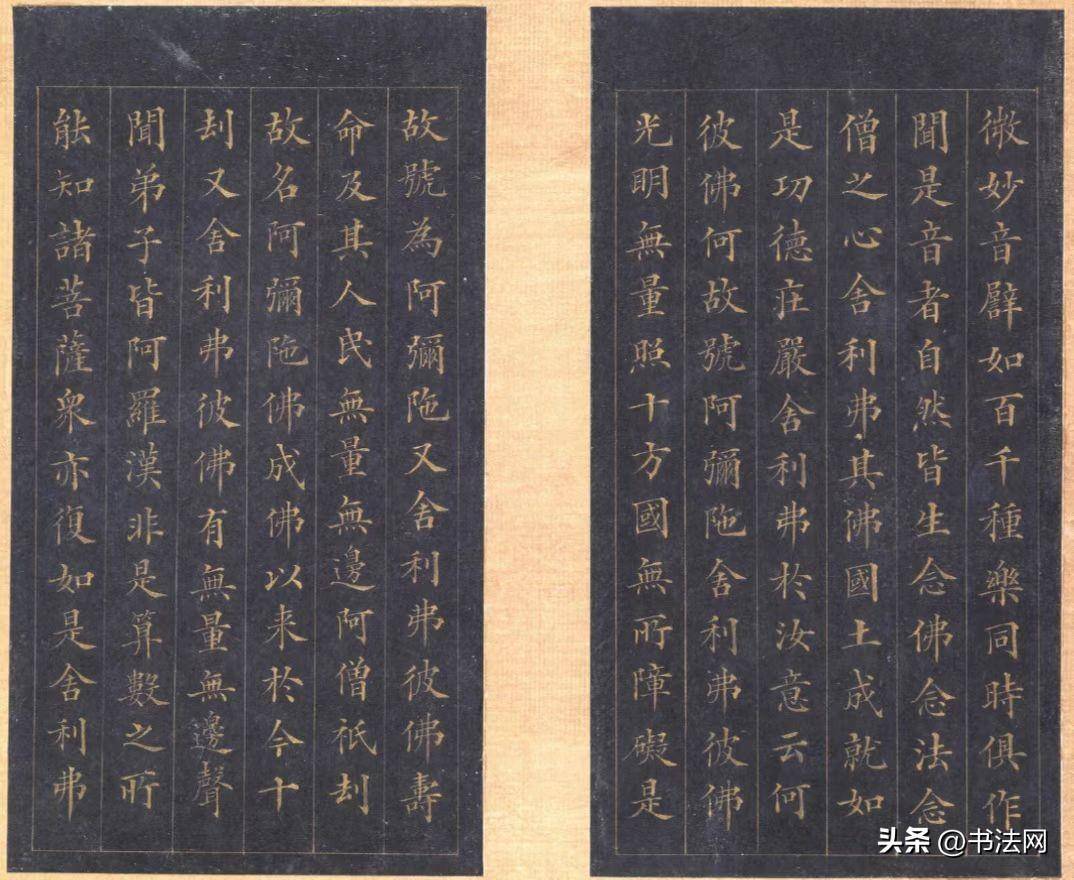 微妙音辟如百千種樂同時俱作
聞是音者自然皆生念佛念法念
僧之心舍利弗其佛國土成就如
是功德莊嚴舍利弗於汝意云何
彼佛何故號阿彌陁舍利弗彼佛
光明無量照十方國無所障礙是
故號為阿彌陁又舍利弗彼佛壽
命及其人民無量無邊阿僧祇刦
故名阿彌陁佛成佛以来於今十
刦又舍利弗彼佛有無量無邊聲
聞弟子皆阿羅漢非是算數之所
能知諸菩薩衆亦復如是舍利弗
头条 @书法网